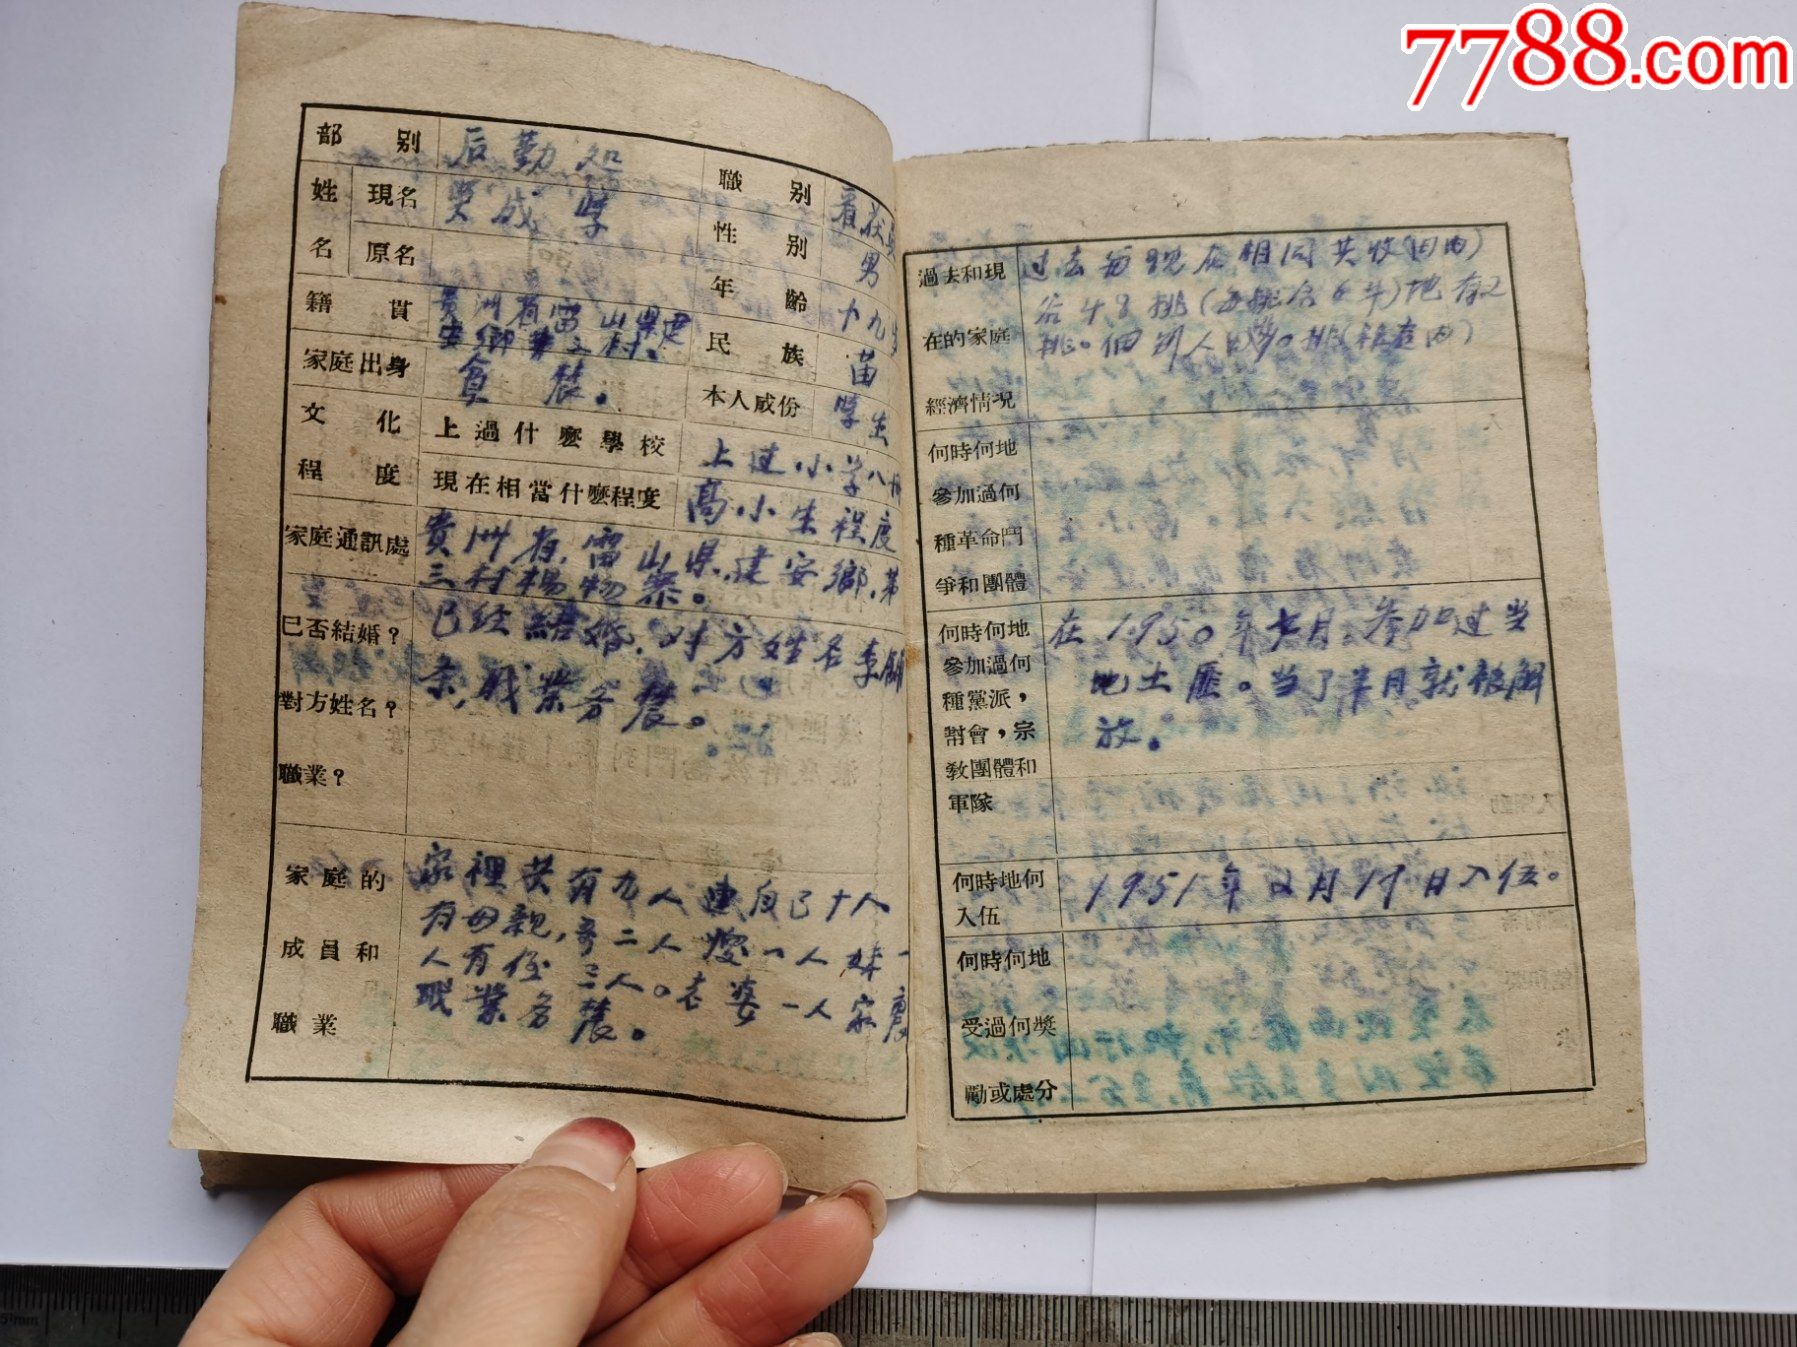 7788.com
部别 后勤处
職别
姓名
現名
成學
性别 男
原名
年齡 十九
籍貫
貴州省雷山県建
安鄉第三村
民族 苗
家庭出身 貧農。
本人成份 學生
文化程度
上過什麽學校 上过小学八
現在相當什麽程度 高小生程度
家庭通訊處 貴州省,雷山県,建安鄉,第
三村楊物寨。
已否結婚?對方姓名?職業?
已经結婚,对方姓名李
条,職業务農。
家庭的成員和職業
家裡共有九人連自己十人
有母親,哥二人嫂一人妹一
人有侄三人。老婆一人家庭
職業务農。
過去和現在的家庭經濟情况
过去与現在相同共收(田内)
谷48挑(每挑合6斗)地有2
挑。
何時何地參加過何種革命鬥爭和團體
何時何地參加過何種黨派,幇會,宗教團體和軍隊
在1950年七月,参加过当
地土匪。当了半月就被解
放。
何時地何入伍
1951年2月19日入伍。
何時何地受過何獎勵或處分